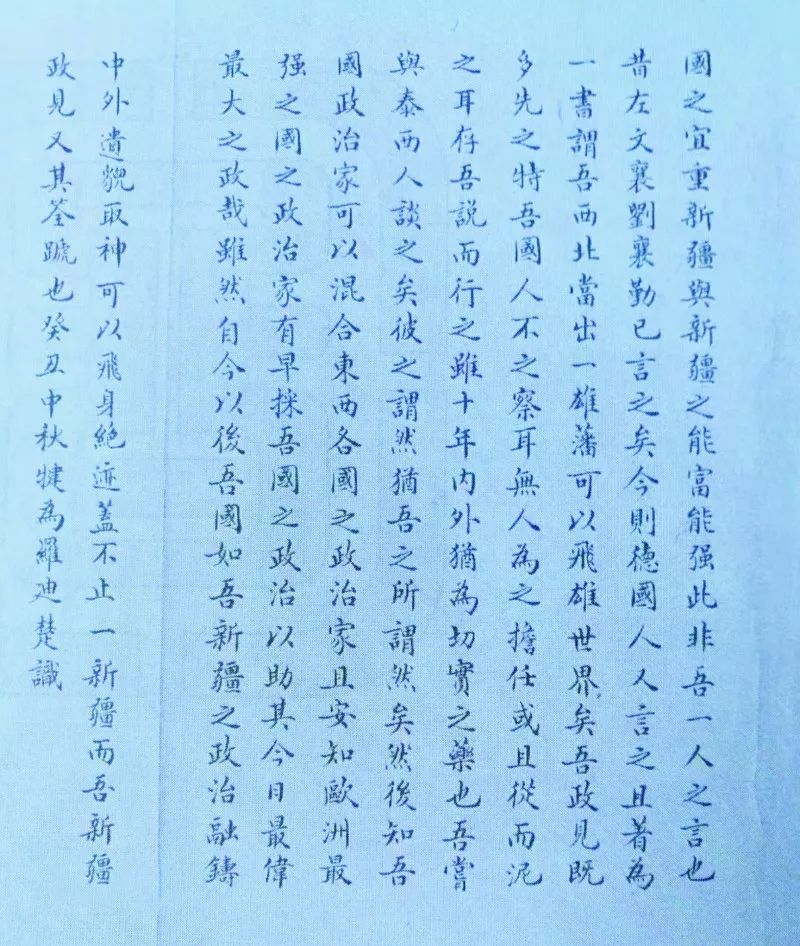 國之宜重新疆與新疆之能富能强此非吾一人之言也
昔左文襄劉襄勤已言之矣今則德國人又言之且著為
一書謂吾西北當出一雄藩可以飛雄世界矣吾政見既
多先之特吾國人不之察耳無人為之擔任或且從而泥
之耳存吾説而行之雖十年内外猶為切實之藥也吾嘗
與泰西人談之矣彼之謂然猶吾之所謂然矣然後知吾
國政治家可以混合東西各國之政治家且安知歐洲最
强之國之政治家有早採吾國之政治以助其今日最偉
最大之政哉雖然自今以後吾國如吾新疆之政治融鑄
中外遺貌取神可以飛身絶迹蓋不止一新疆而吾新疆
政見又其筌蹏也癸丑中秋犍為羅迪楚識